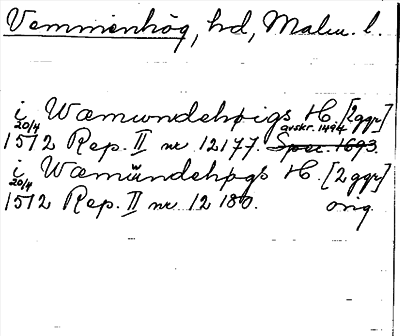 Vemmenhög, hd, Malm. l.
i Wæmundehøigs H. [2 ggr]
20/4 avskr. 1494
1512 Rep. II nr 12177. Spec. 1693.
i Wæmundehøgs H. [2 ggr]
20/4
1512 Rep. II nr 12180. orig.